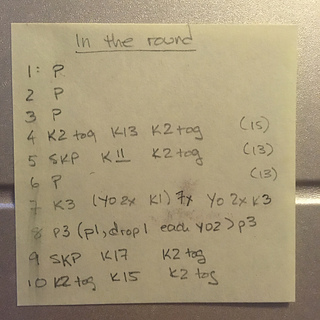 In the round
1: P
2 P
3 P
4 K2 tog K13 K2 tog (15)
5 SKP K 11 K2 tog (13)
6 P (13)
7 K3 (Yo 2x K1) 7x Yo 2x K3
8 P3 (P1, drop 1 each yo2) p3
9 SKP K17 K2 tog
10 K2 tog K15 K2 tog